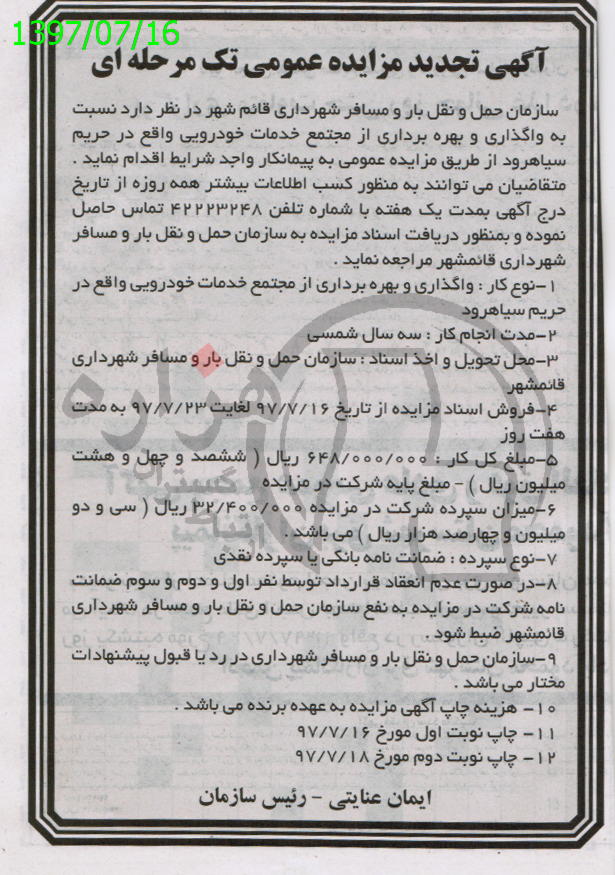 1397/07/16
آگهی تجدید مزایده عمومی تک مرحله ای
سازمان حمل و نقل بار و مسافر شهرداری قائم شهر در نظر دارد نسبت
به واگذاری و بهره برداری از مجتمع خدمات خودرویی واقع در حریم
سیاهرود از طریق مزایده عمومی به پیمانکار واجد شرایط اقدام نماید .
متقاضیان می توانند به منظور کسب اطلاعات بیشتر همه روزه از تاریخ
درج آگهی بمدت یک هفته با شماره تلفن ۴۲۲۲۳۲۴۸ تماس حاصل
نموده و بمنظور دریافت اسناد مزایده به سازمان حمل و نقل بار و مسافر
شهرداری قائمشهر مراجعه نماید .
۱-نوع کار : واگذاری و بهره برداری از مجتمع خدمات خودرویی واقع در
حریم سیاهرود
۲-مدت انجام کار : سه سال شمسی
۳-محل تحویل و اخذ اسناد : سازمان حمل و نقل بار و مسافر شهرداری
قائمشهر
۴-فروش اسناد مزایده از تاریخ ۹۷/۷/۱۶ لغایت ۹۷/۷/۲۳ به مدت
هفت روز
۵-مبلغ کل کار : ۶۴۸/۰۰۰/۰۰۰ ریال ( ششصد و چهل و هشت
میلیون ریال ) - مبلغ پایه شرکت در مزایده
۶-میزان سپرده شرکت در مزایده ۳۲/۴۰۰/۰۰۰ ریال ( سی و دو
میلیون و چهارصد هزار ریال ) می باشد .
۷-نوع سپرده : ضمانت نامه بانکی یا سپرده نقدی
۸-در صورت عدم انعقاد قرارداد توسط نفر اول و دوم و سوم ضمانت
نامه شرکت در مزایده به نفع سازمان حمل و نقل بار و مسافر شهرداری
قائمشهر ضبط شود .
۹-سازمان حمل و نقل بار و مسافر شهرداری در رد یا قبول پیشنهادات
مختار می باشد .
۱۰- هزینه چاپ آگهی مزایده به عهده برنده می باشد .
۱۱- چاپ نوبت اول مورخ ۹۷/۷/۱۶
۱۲- چاپ نوبت دوم مورخ ۹۷/۷/۱۸
ایمان عنایتی - رئیس سازمان
هزاره